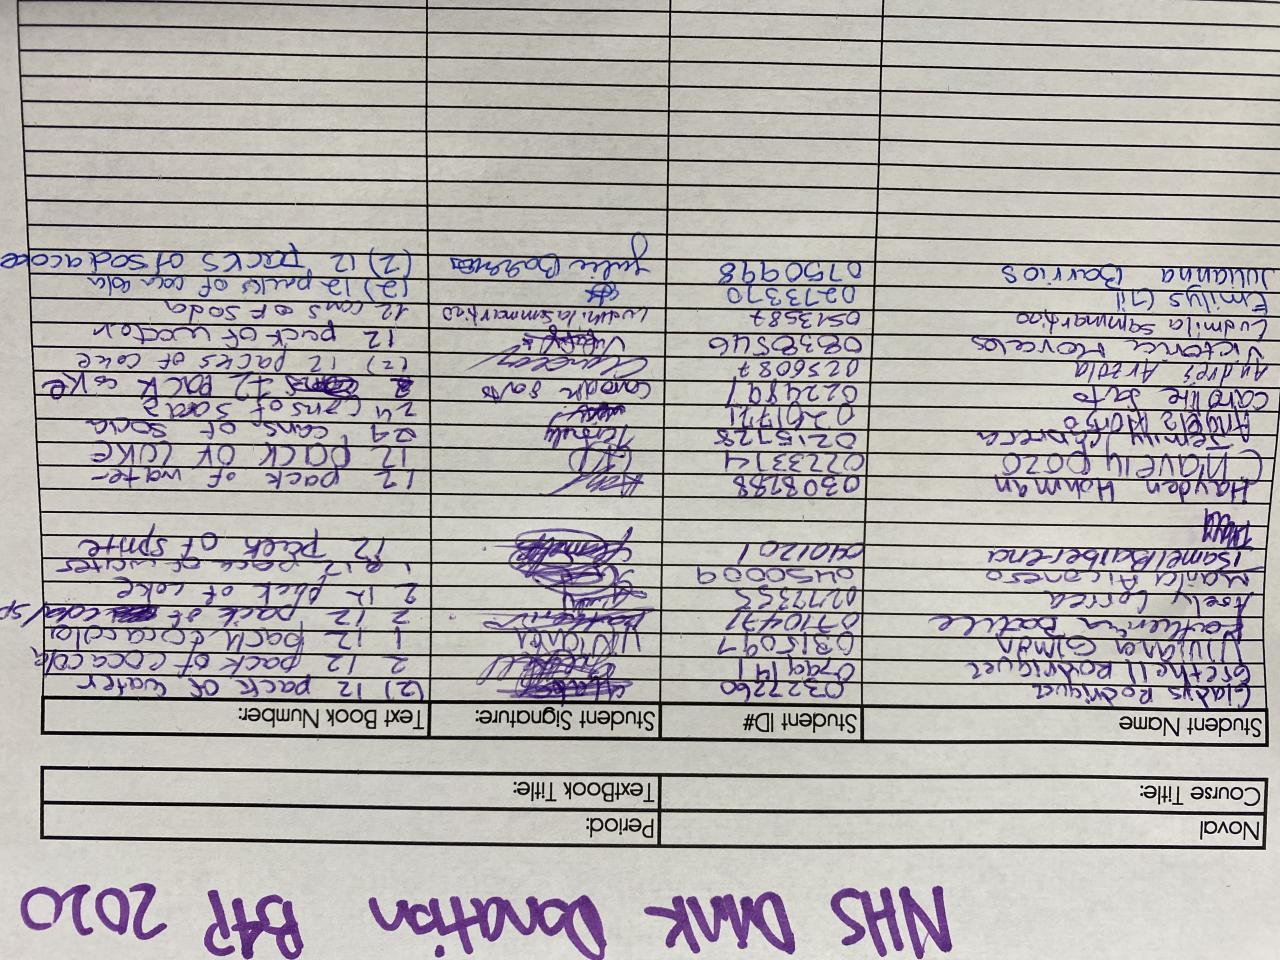 NHS Drink Donation BTP 2020
Noval Period:
Course Title: TextBook Title:
Student Name Student ID# Student Signature: Text Book Number:
Gladys Rodriguez 0327260 (2) 12 pack of water
Grethell Rodriguez 0749141 2 12 pack of coca cola
Viviana Colman 0315097 Viviana 1 12 pack coca cola
Katherina Batlle 0710471 2 12 pack of
Arely Correa 0277355 2 12 pack of coke
Maria 0450009 1 12 pack of water
Isamel Barberena 0401201 12 pack of sprite
Hayden Hohman 0308288 12 pack of water
Chavely Pozo 0223314 12 pack of coke
Jemily Cabrera 0215728 24 cans of soda
Angela Alonso 0261721 24 cans of soda
Caroline Sarto 0224897 Caroline Sarto 12 pack coke
Andrés Arzola 0256087 (2) 12 packs of coke
Victoria Morcelos 0838546 12 pack of water
Ludmila Sammartino 0513587 Ludmila Sammartino 12 cans of soda
Emilys Gil 0273370 (2) 12 packs of coca cola
Julianna Barrios 0750998 (2) 12 packs of soda